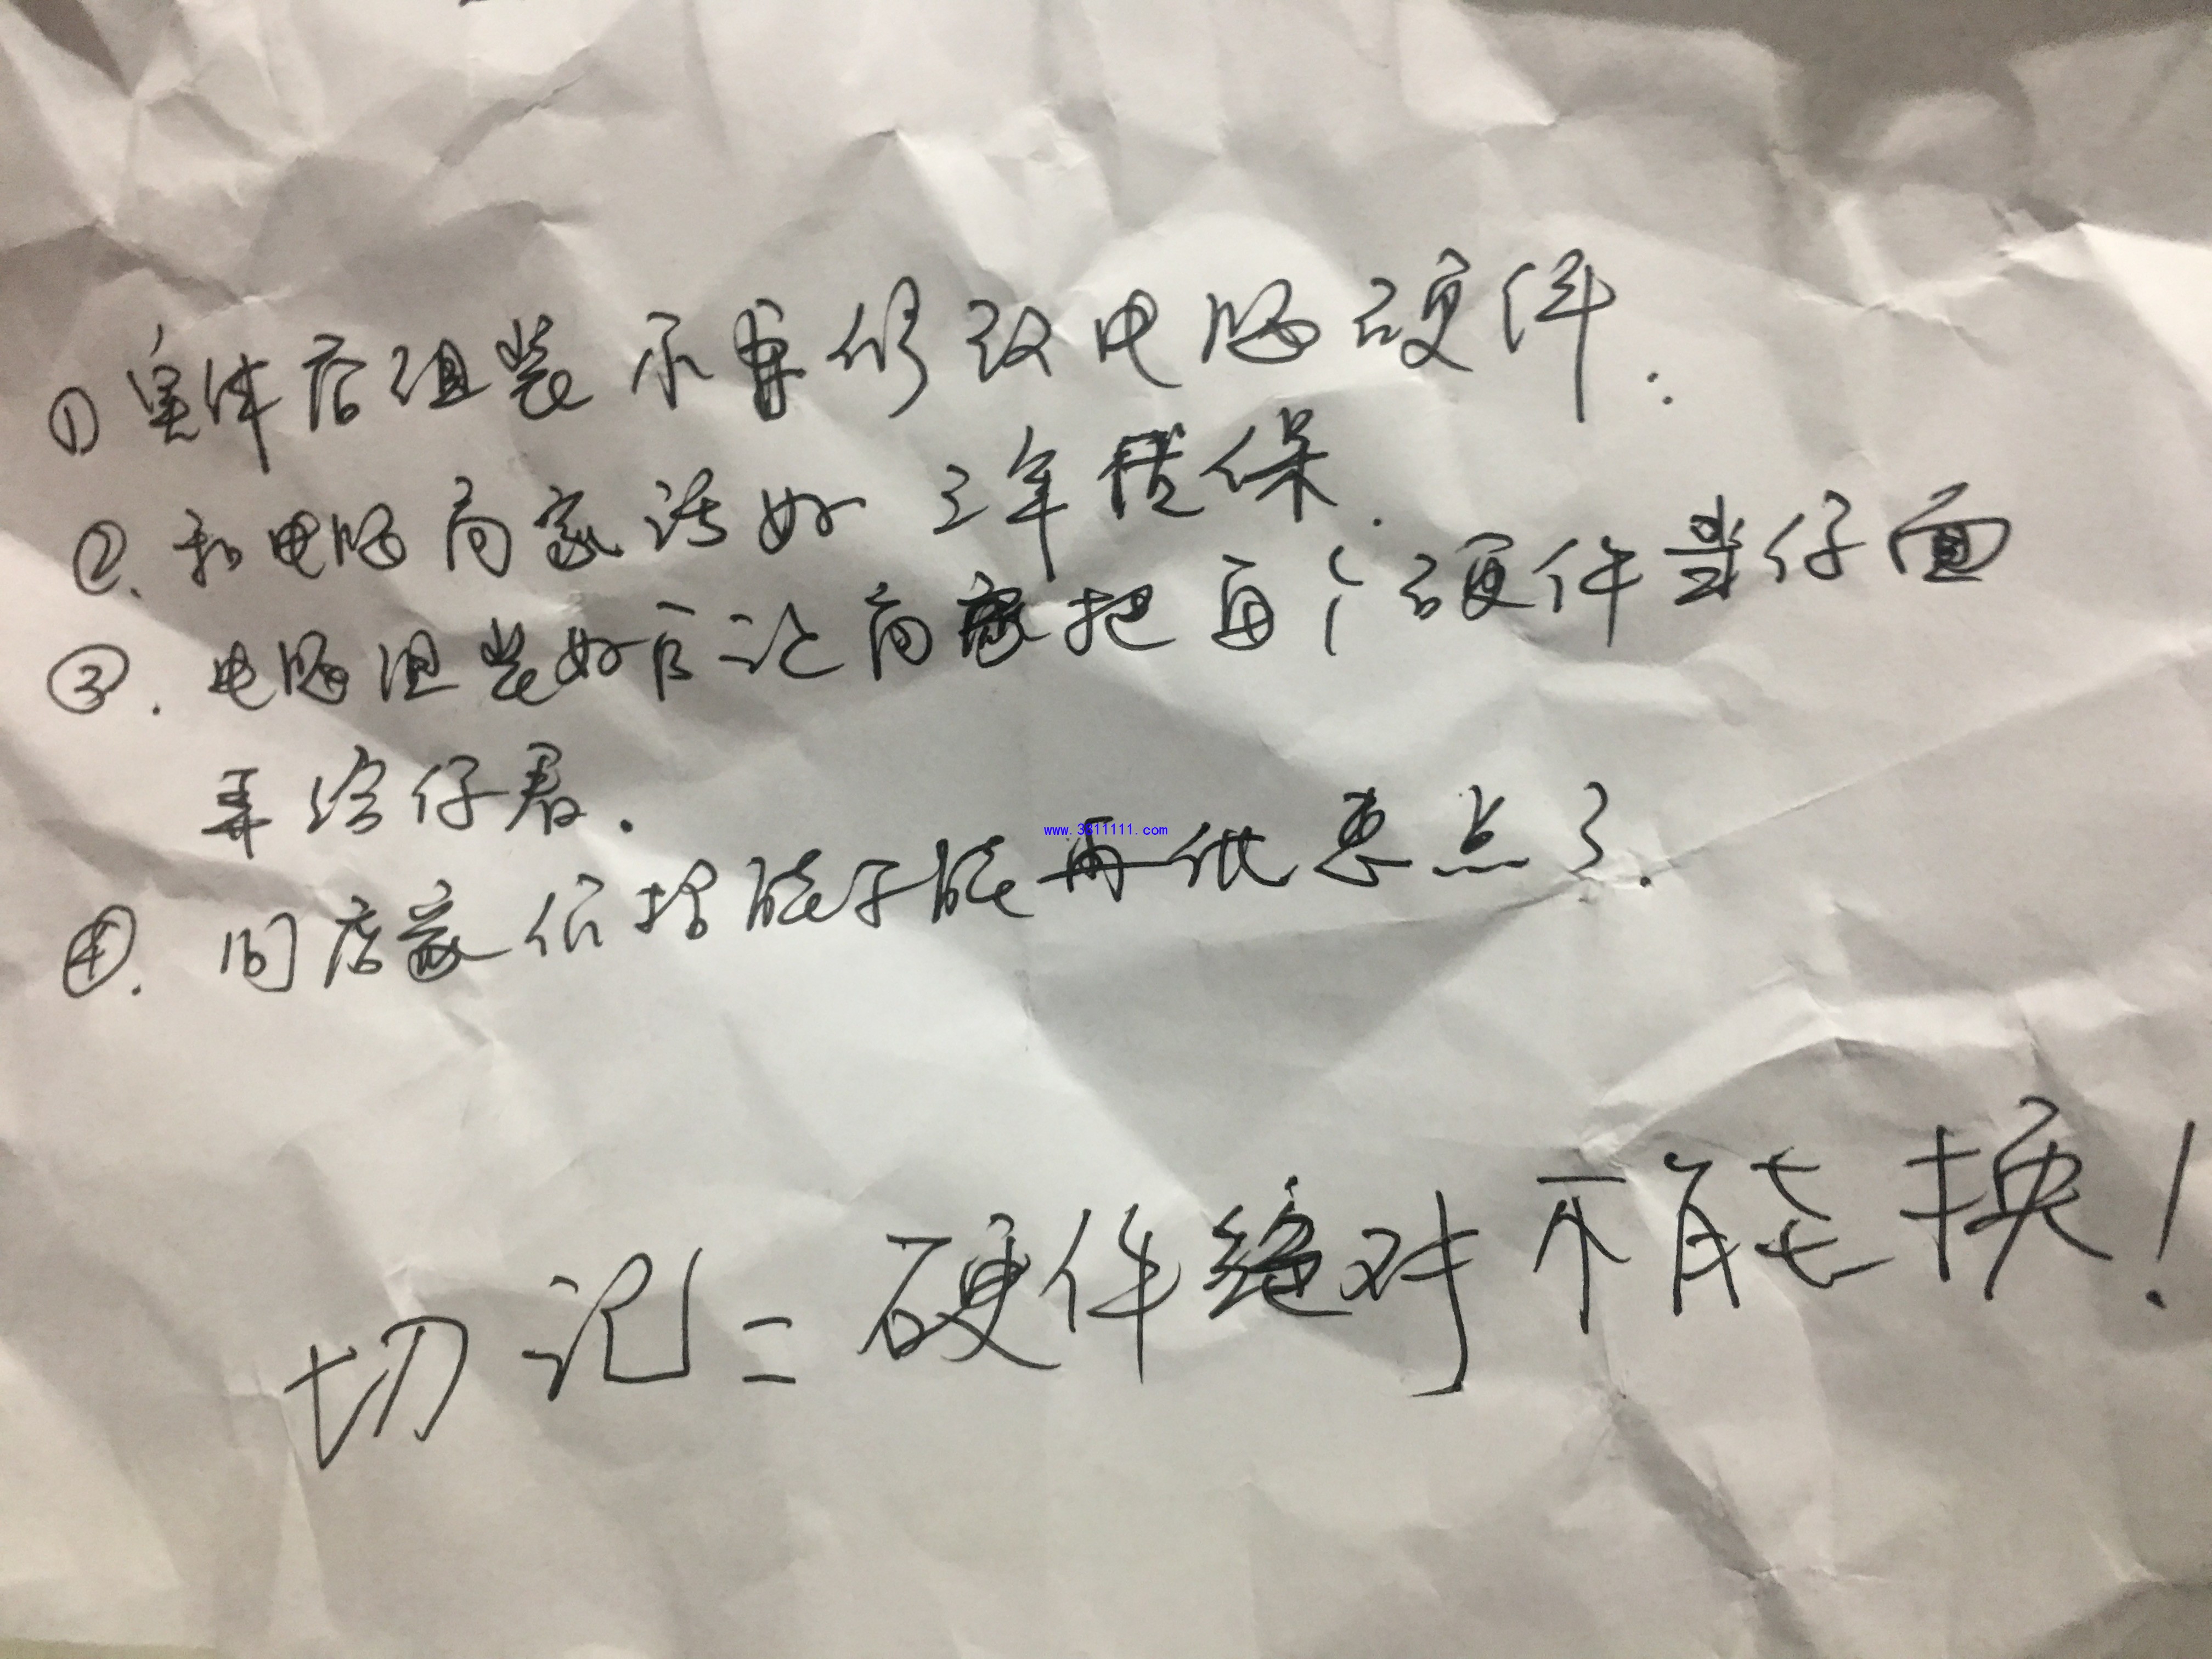 ①实体店组装不再修改电脑硬件.
②.和电脑商家话好三年质保.
③.电脑组装好后让商家把每个硬件当仔面
弄给仔看.
www.3311111.com
④.问店家价格能不能再优惠点了.
切记=硬件绝对不能换!